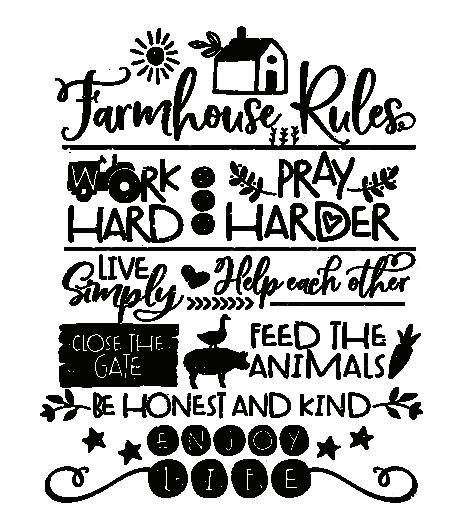 Farmhouse Rules
WORK HARD
PRAY HARDER
LIVE Simply
Help each other
CLOSE THE GATE
FEED THE ANIMALS
BE HONEST AND KIND
ENJOY
LIFE